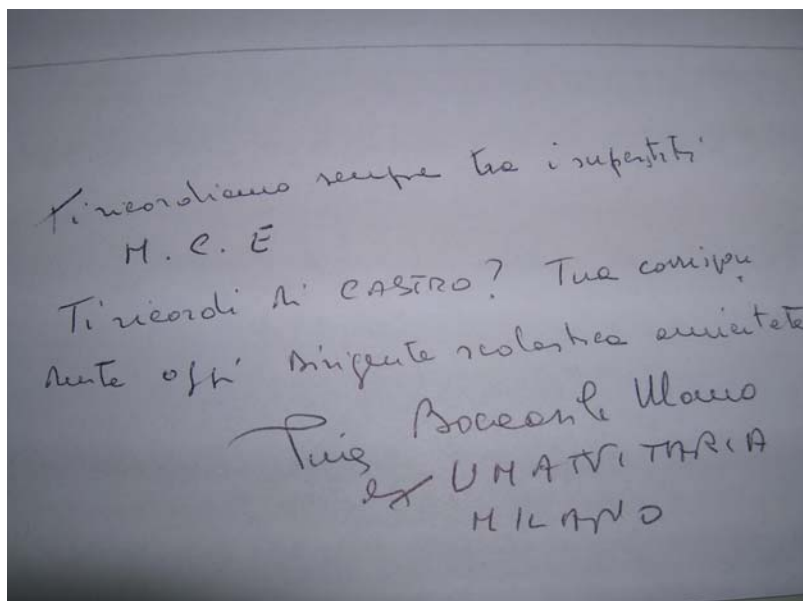 Ti ricordiamo sempre tra i superstiti
M. C. E
Ti ricordi di CASTRO? Tua corrispon
dente oggi dirigente scolastica
ex UMANITARIA
MILANO